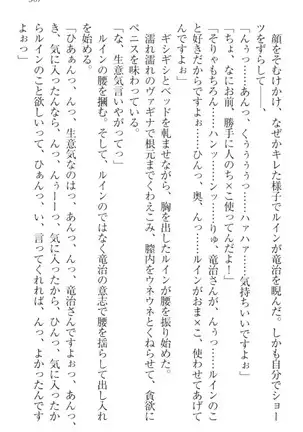 顔をそむけ、なぜかキレた様子でルインが竜治を睨んだ。しかも自分でショー
ツをずらして――。
「んぅっ……あんっ、くぅぅぅぅっ……ハァハァ……気持ちいいですよぉ」
「ちょ、なにお前、勝手に人のち×こ使ってんだよ！」
「そりゃもちろん……ハンッ……ンッ……りゅ、竜治さんが……んっ……ルインのこ
と好きだからですぅ……ひんっ、奥、んっ……ルインがおま×こ、使わせてあげて
るんですよぉ」
ギシギシとベッドを軋ませながら、胸を出したルインが腰を振り始めた。
濡れ濡れのヴァギナで根元までくわえこみ、膣内をウネウネとくねらせて、貪欲に
ペニスを味わっている。
「な、生意気言いやがって！」
ルインの腰を掴む。そして、ルインのではなく竜治の意志で腰を揺らして出し入れ
を始める。
「ひああんっ、んっ、生意気なのはっ、あんっ、竜治さんですよぉっ、あんっ、ひ
き、気に入ったんなら、んっ、んぅーーっ、き、気に入ったから、ひあんっ、だか
らルインのこと欲しいって、ひぁんっ、い、言ってくれれば、んっ、よかったんです